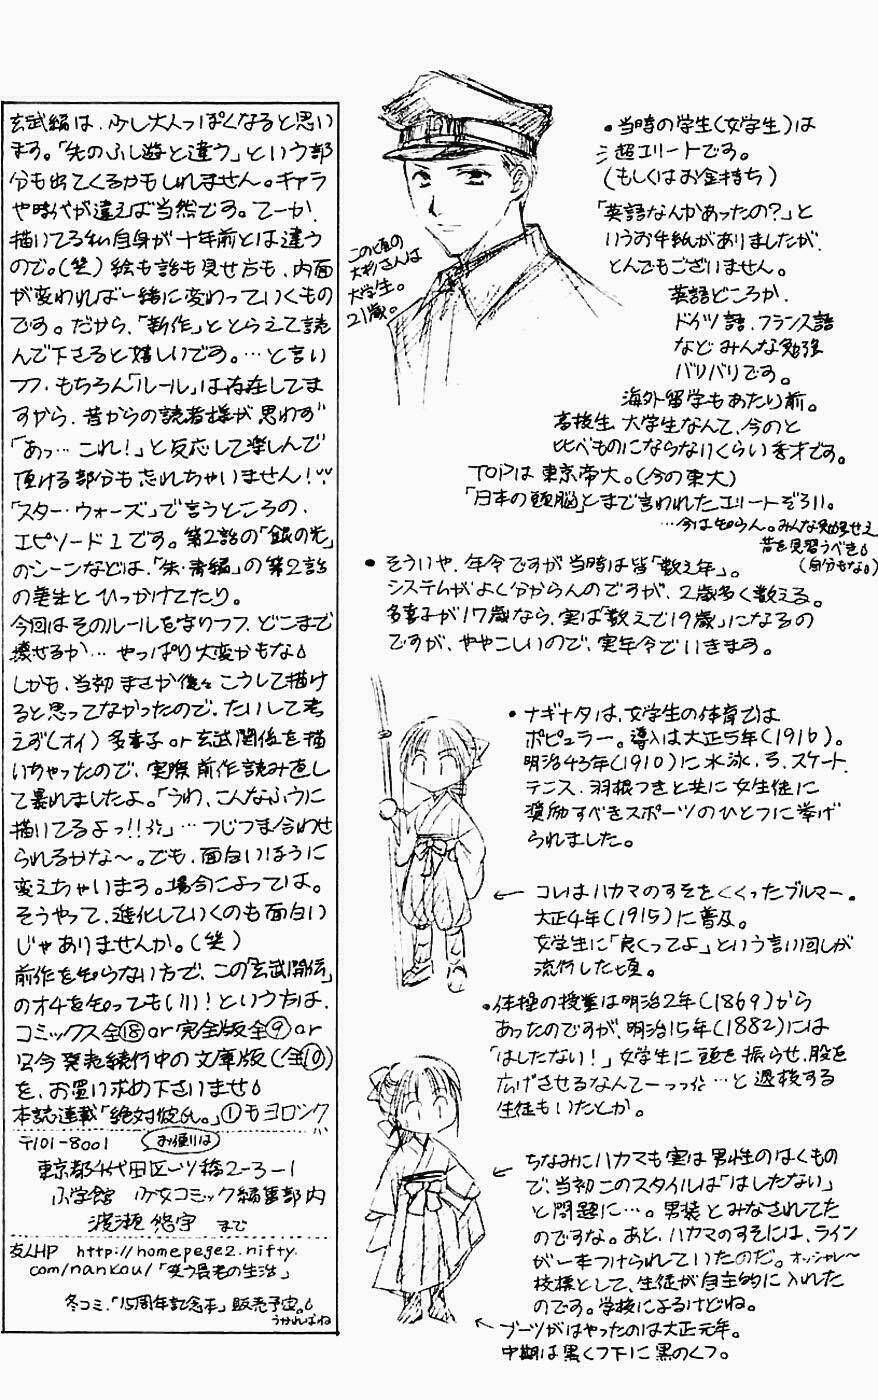 玄武編は、少し大人っぽくなると思い
ます。「先のふし遊と違う」という部
分も出てくるかもしれません。キャラ
や時代が違えば当然です。てーか、
描いてる私自身が十年前とは違う
ので。(笑)絵も話も見せ方も、内面
が変われば一緒に変わっていくもの
です。だから、「新作」ととらえて読
んで下さると嬉しいです。…と言い
つつ、もちろん「ルール」は存在してま
すから、昔からの読者様が思わず
「あっ…これ!」と反応して楽しんで
頂ける部分も忘れちゃいません!
「スター・ウォーズ」で言うところの、
エピソード1です。第2話の「銀の光」
のシーンなどは、「朱・青編」の第2話
の美生とひっかけてたり。
今回はそのルールを守りつつ、どこまで
壊せるか…やっぱり大変かもなあ
しかも、当初まさか後々こうして描け
ると思ってなかったので、たいして考
えず(オイ)多喜子or玄武関係を描
いちゃったので、実際前作読み直し
て暴れましたよ。「うわ、こんなふうに
描いてるよっ!!」…つじつま合わせ
られるかな〜。でも、面白いほうに
変えちゃいます。場合によっては。
そうやって、進化していくのも面白い
じゃありませんか。(笑)
前作を知らない方で、この「玄武開伝」
のオチを知っても(いい!)という方は、
コミックス全⑱or完全版全⑨or
只今発売続行中の文庫版(全⑩)
を、お買い求め下さいませ
本誌連載「絶対彼氏。」①もヨロシク
〒101-8001 お便りは
東京都千代田区一ツ橋2-3-1
小学館 少女コミック編集部内
渡瀬悠宇 まで
友人HP http://homepege2.nifty.
com/nankou/「笑う長老の生活」
冬コミ、「15周年記念本」販売予定。
うかればね
この頃の
大杉さんは
大学生。
21歳。
・当時の学生(女学生)は
超エリートです。
(もしくはお金持ち)
「英語なんかあったの?」と
いうお手紙がありましたが、
とんでもございません。
英語どころか、
ドイツ語、フランス語
などみんな勉強
バリバリです。
海外留学もあたり前。
高校生、大学生なんて、今のと
比べものにならないくらい秀才です。
TOPは東京帝大。(今の東大)
「日本の頭脳」とまで言われたエリートぞろい。
…今は知らん。みんな勉強せえ
昔を見習うべき
(自分もな)
・そういや、年令ですが当時は皆「数え年」。
システムがよく分からんのですが、2歳多く数える。
多喜子が17歳なら、実は「数えで19歳」になるの
ですが、ややこしいので、実年令でいきます。
・ナギナタは、女学生の体育では
ポピュラー。導入は大正5年(1916)。
明治43年(1910)に水泳、弓、スケート、
テニス、羽根つきと共に女生徒に
奨励すべきスポーツのひとつに挙げ
られました。
← コレはハカマのすそをくくったブルマー。
大正4年(1915)に普及。
女学生に「良くってよ」という言い回しが
流行した頃。
・体操の授業は明治2年(1869)から
あったのですが、明治15年(1882)には
「はしたない!」女学生に頭を振らせ、股を
広げさせるなんてーっっ…と退校する
生徒もいたとか。
← ちなみにハカマも実は男性のはくもの
で、当初このスタイルは「はしたない」
と問題に…。男装とみなされてた
のですな。あと、ハカマのすそには、ライン
が一本つけられていたのだ。オッシャレ〜
校標として、生徒が自主的に入れた
のです。学校によるけどね。
← ブーツがはやったのは大正元年。
中期は黒くつ下に黒のくつ。